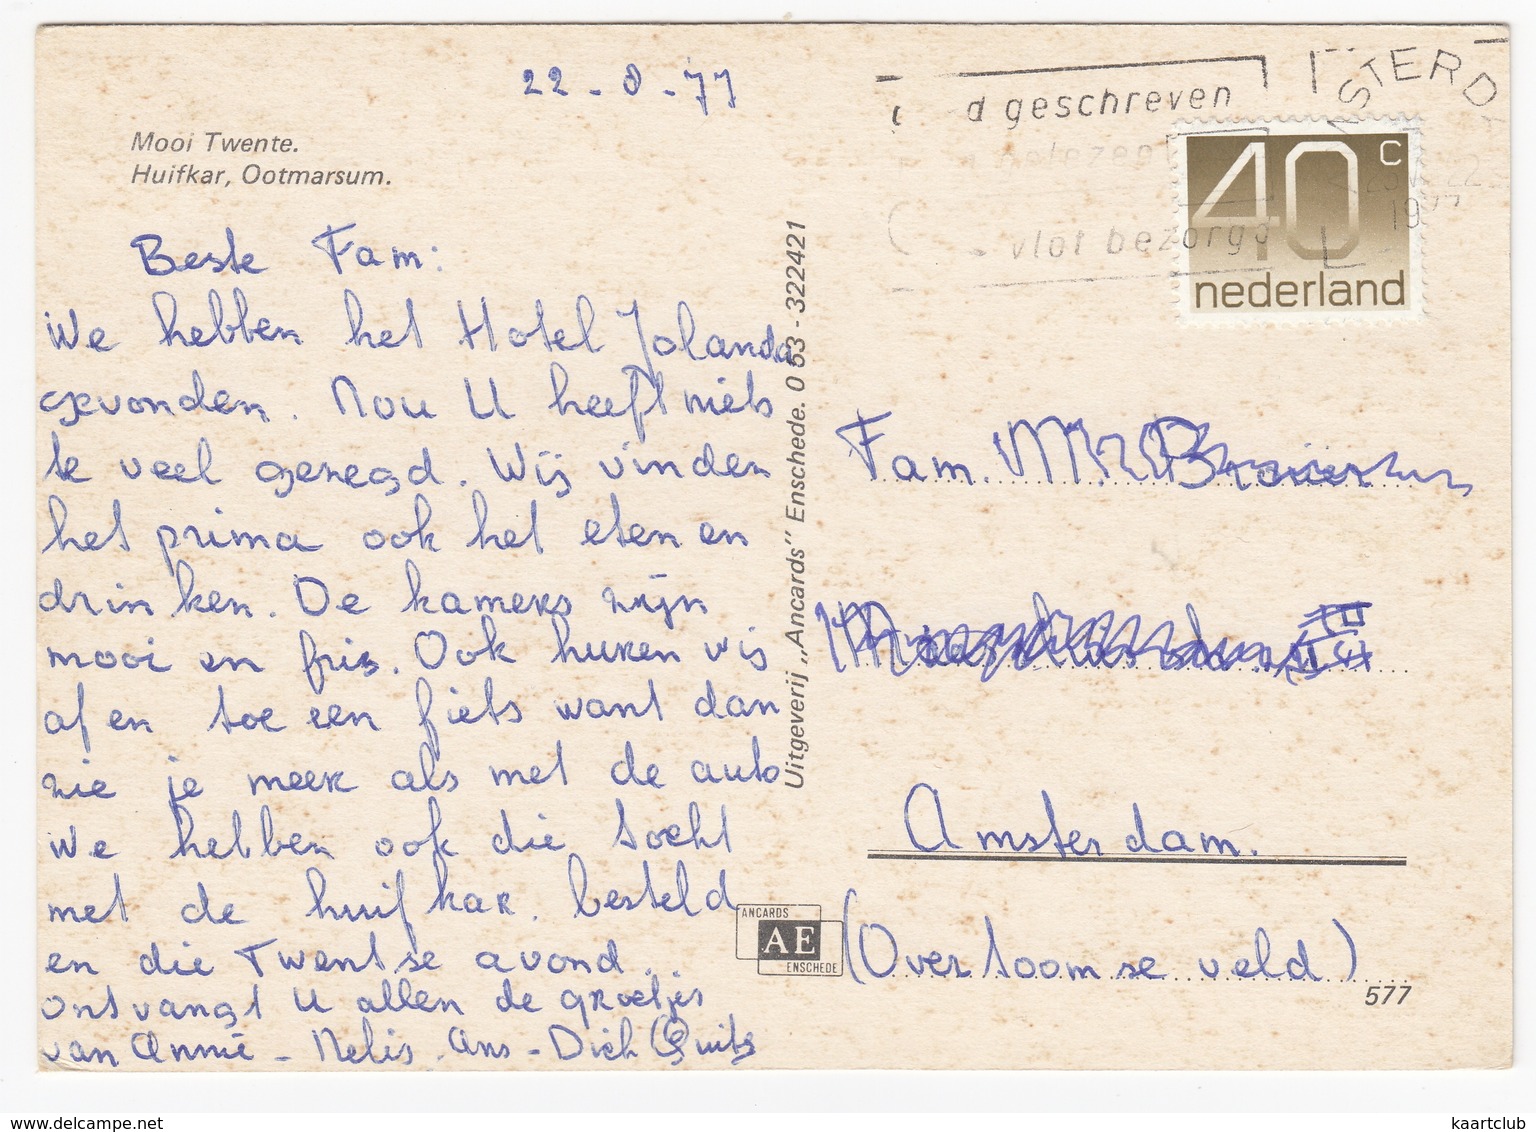 22 - 8 - 77
Mooi Twente.
Huifkar, Ootmarsum.
Beste Fam:
We hebben het Hotel Jolanda
gevonden. Nou U heeft niets
te veel gezegd. Wij vinden
het prima ook het eten en
drinken. De kamers zijn
mooi en fris. Ook huren wij
af en toe een fiets want dan
zie je meer als met de auto
We hebben ook die tocht
met de huifkar. besteld
en die Twentse avond.
ontvangt U allen de groetjes
van Annie - Nelis. Ans - Dick
Uitgeverij „Ancards” Enschede. 0 53 - 322421
ANCARDS
AE
ENSCHEDE
d geschreven
vlot bezorgd
MSTERD
1977
40 c
nederland
Fam.
Amsterdam.
(Overtoomse veld)
577
kaartclub